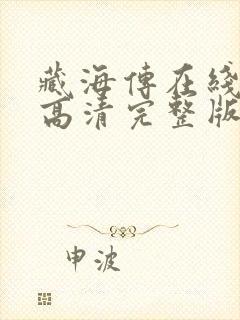 藏海傳在綫
高清完整版
申波